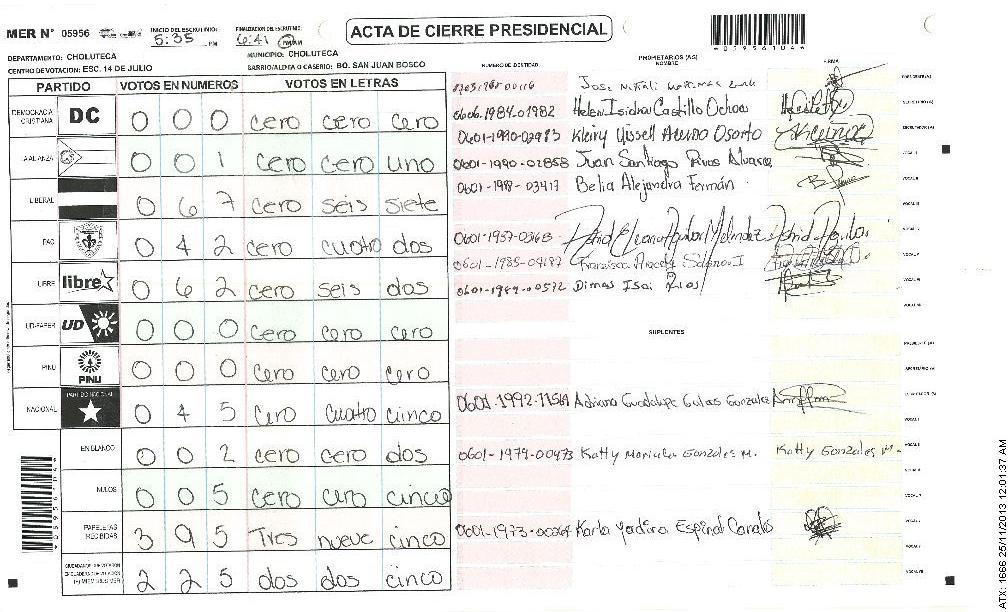 MER N° 05956
INICIO DEL ESCRUTINIO: 5:35 PM
FINALIZACION DEL ESCRUTINIO: 6:41 PM
ACTA DE CIERRE PRESIDENCIAL
DEPARTAMENTO: CHOLUTECA
MUNICIPIO: CHOLUTECA
CENTRO DE VOTACION: ESC. 14 DE JULIO
BARRIO/ALDEA O CASERIO: BO. SAN JUAN BOSCO
PARTIDO VOTOS EN NUMEROS VOTOS EN LETRAS
DEMOCRACIA CRISTIANA DC 0 0 0 cero cero cero
ALIANZA 0 0 1 cero cero uno
LIBERAL 0 6 7 cero seis siete
PAC 0 4 2 cero cuatro dos
LIBRE libre 0 6 2 cero seis dos
UD-FAPER UD 0 0 0 cero cero cero
PINU PINU 0 0 0 cero cero cero
NACIONAL PARTIDO NACIONAL 0 4 5 cero cuatro cinco
EN BLANCO 0 0 2 cero cero dos
NULOS 0 0 5 cero cero cinco
PAPELETAS RECIBIDAS 3 9 5 Tres nueve cinco
2 2 5 dos dos cinco
NUMERO DE IDENTIDAD
PROPIETARIOS (AS)
NOMBRE
FIRMA
0606-1984-01982 Helen Isidra Castillo Ochoa
0601-1990-02983 Kleiry Yissell Aceituno Osorto
0601-1990-02858 Juan Santiago Rivas Alvarez
0601-1987-03417 Belia Alejandra Fermán
0601-1957-0368
0601-1985-04187 Francisca
0601-1989-00592 Dimas Isai Rios
SUPLENTES
0601-1992-11561 Adriana Guadalupe Gonzales
0601-1979-00473 Katty Maricela Gonzales M. Katty Gonzales M.
0601-1973-00264 Karla Yadira Espinal Canales
*05956104*
ATX: 1666 25/11/2013 12:01:37 AM